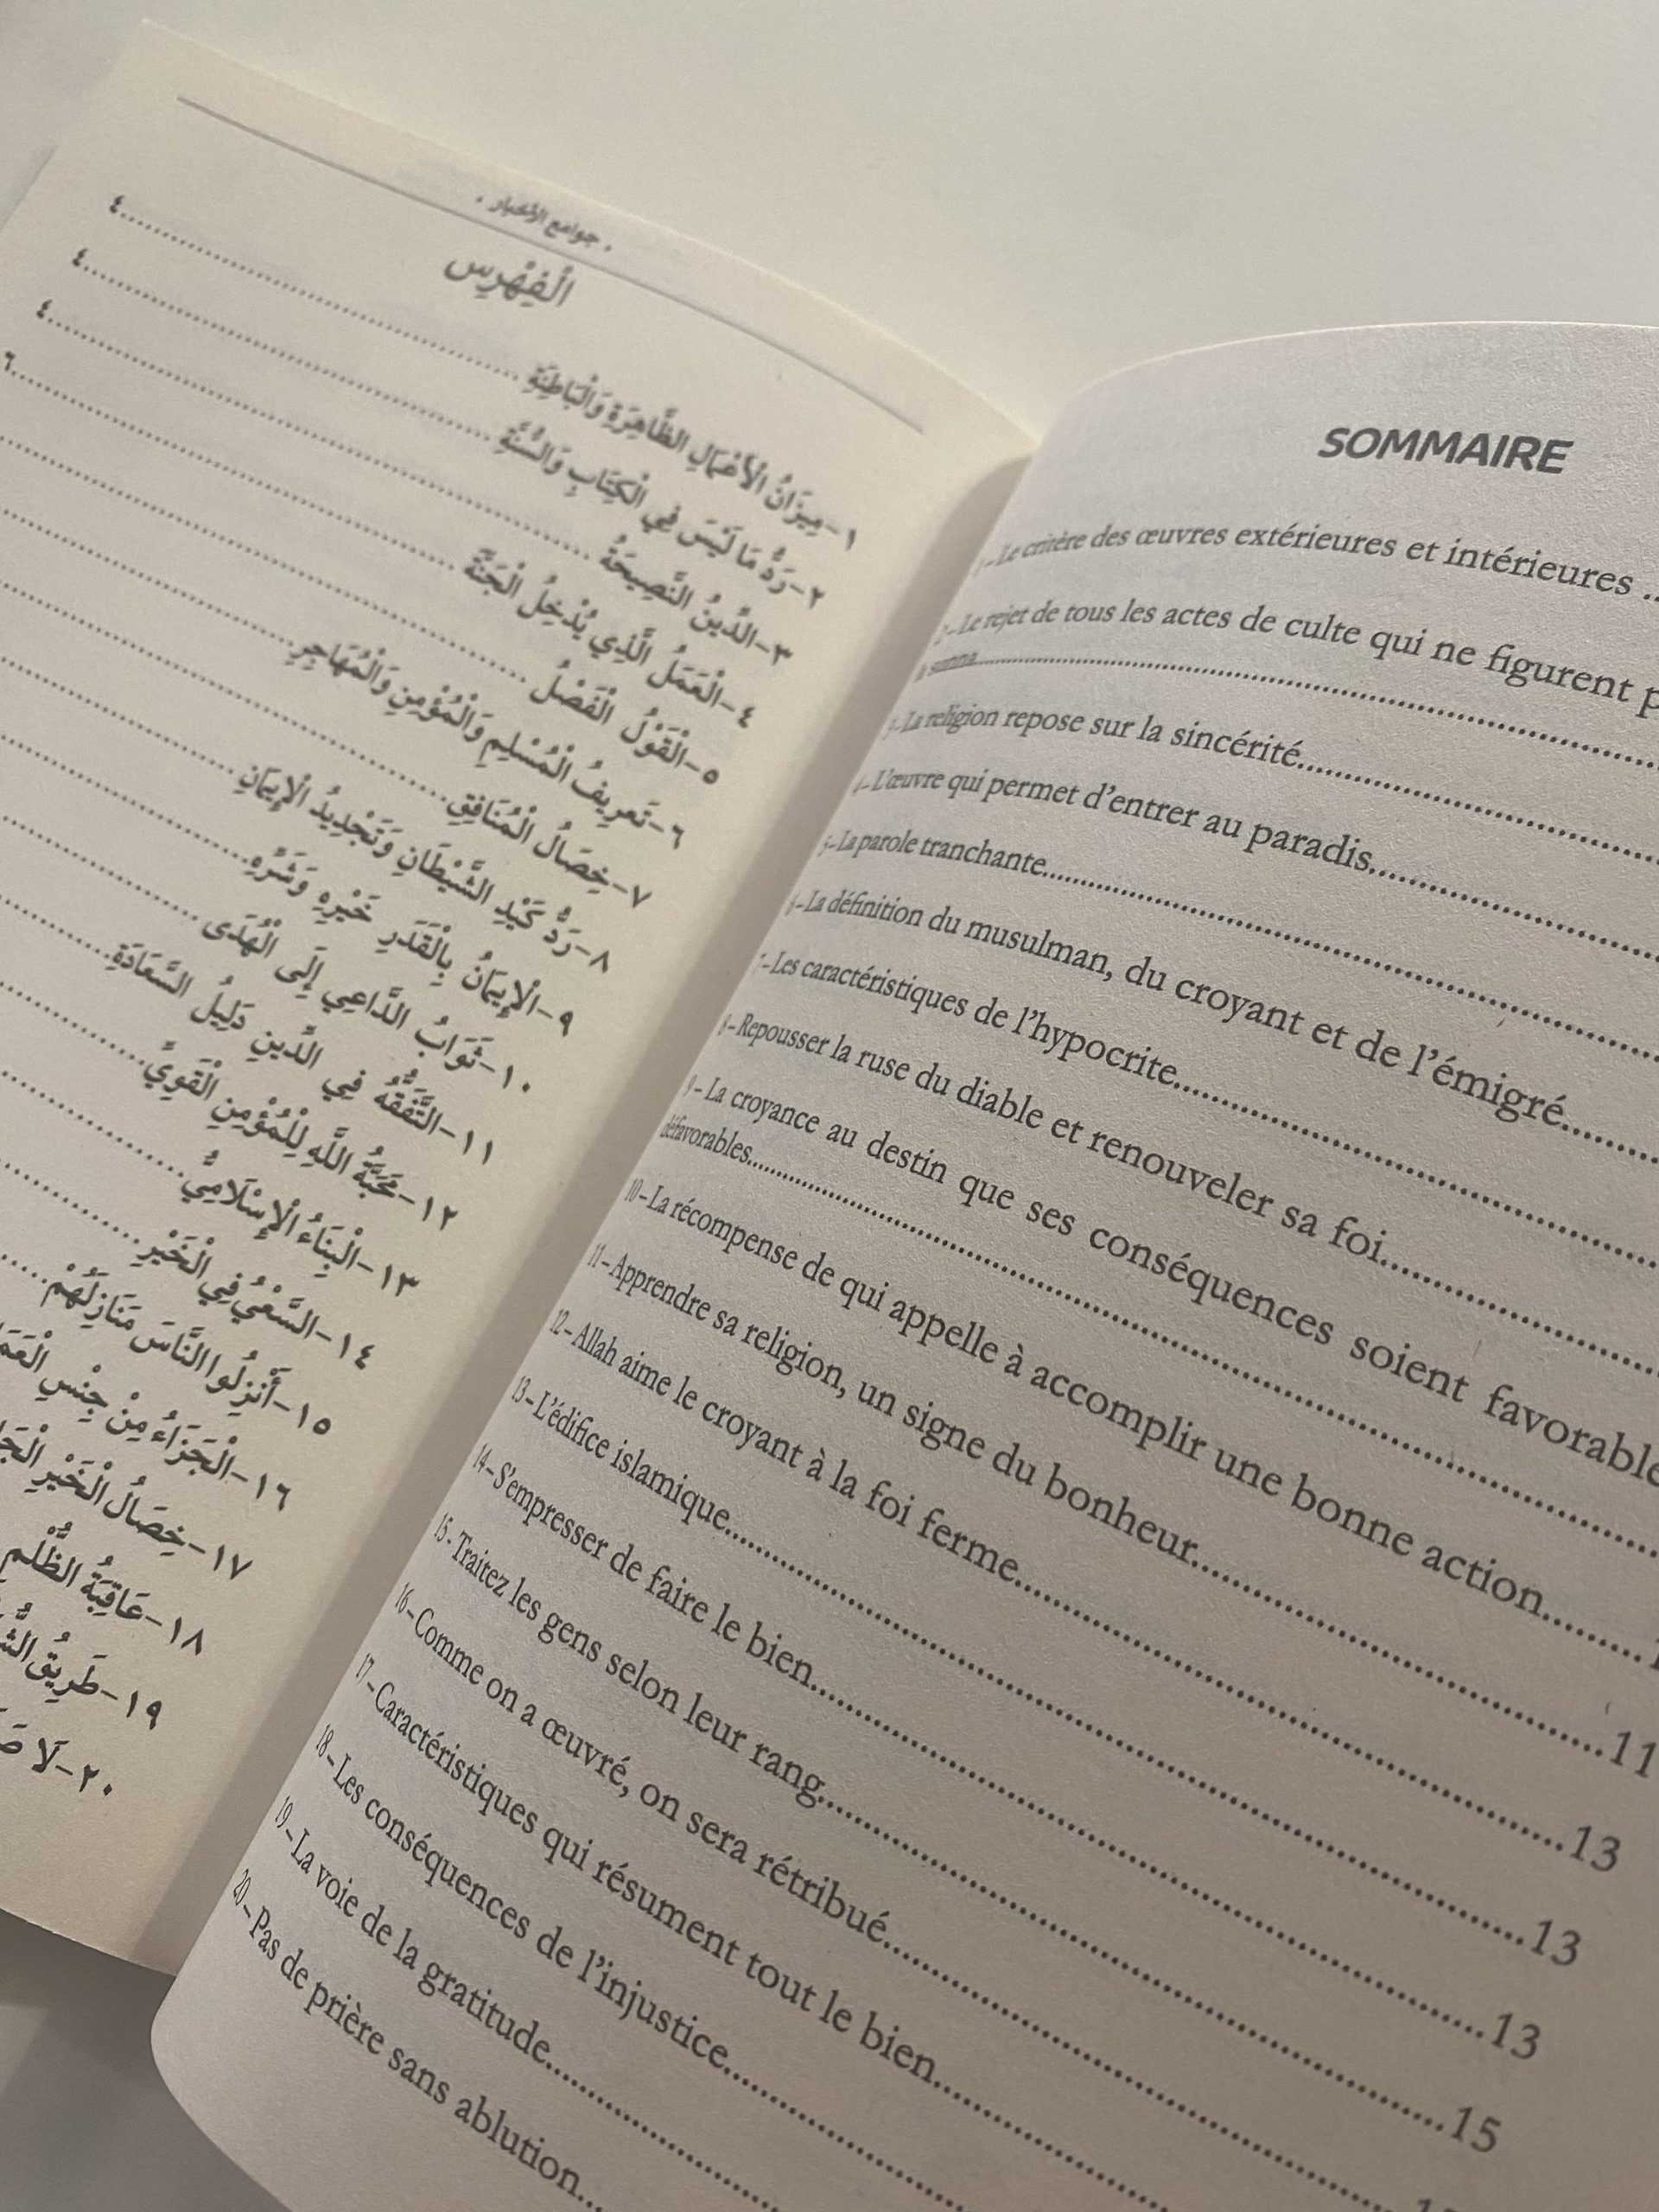 • جوامع الأخبار •
الْفِهْرِس
١-مِيزَانُ الْأَعْمَالِ الظَّاهِرَةِ وَالْبَاطِنَةِ................................٤
٢-رَدُّ مَا لَيْسَ فِي الْكِتَابِ وَالسُّنَّةِ................................٤
٣-الدِّينُ النَّصِيحَةُ................................٤
٤-الْعَمَلُ الَّذِي يُدْخِلُ الْجَنَّةَ................................٦
٥-الْقَوْلُ الْفَصْلُ................................
٦-تَعرِيفُ الْمُسْلِمِ وَالْمُؤْمِنِ وَالْمُهَاجِرِ................................
٧-خِصَالُ الْمُنَافِقِ................................
٨-رَدُّ كَيْدِ الشَّيْطَانِ وَتَجْدِيدُ الْإِيمَانِ................................
٩-الْإِيمَانُ بِالْقَدَرِ خَيْرِهِ وَشَرِّهِ................................
١٠-ثَوَابُ الدَّاعِي إِلَى الْهُدَى................................
١١-التَّفَقُّهُ فِي الدِّينِ دَلِيلُ السَّعَادَةِ................................
١٢-مَحَبَّةُ اللَّهِ لِلْمُؤْمِنِ الْقَوِيِّ................................
١٣-الْبِنَاءُ الْإِسْلَامِيُّ................................
١٤-السَّعْيُ فِي الْخَيْرِ................................
١٥-أَنزِلُوا النَّاسَ مَنَازِلَهُمْ................................
١٦-الْجَزَاءُ مِنْ جِنْسِ
١٧-خِصَالُ الْخَيْرِ
١٨-عَاقِبَةُ الظُّلْمِ
١٩-طَرِيقُ
٢٠-لَا
SOMMAIRE
1-Le critère des œuvres extérieures et intérieures ..
2-Le rejet de tous les actes de culte qui ne figurent
sunna................................
3-La religion repose sur la sincérité................................
4-L'œuvre qui permet d'entrer au paradis................................
5-La parole tranchante................................
6-La définition du musulman, du croyant et de l'émigré................................
7-Les caractéristiques de l'hypocrite................................
8-Repousser la ruse du diable et renouveler sa foi................................
9- La croyance au destin que ses conséquences soient
défavorables................................
10-La récompense de qui appelle à accomplir une bonne action........
11-Apprendre sa religion, un signe du bonheur................................11
12-Allah aime le croyant à la foi ferme................................13
13-L'édifice islamique................................13
14-S'empresser de faire le bien................................13
15- Traitez les gens selon leur rang................................15
16-Comme on a œuvré, on sera rétribué................................
17-Caractéristiques qui résument tout le bien................................
18-Les conséquences de l'injustice................................
19-La voie de la gratitude................................
20-Pas de prière sans ablution...